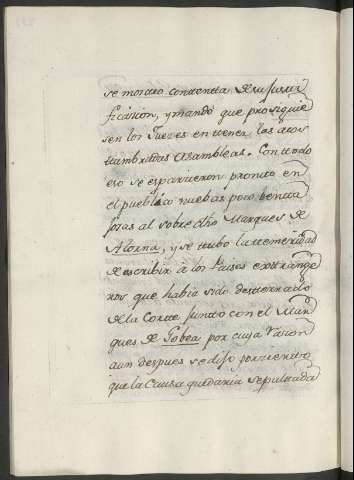 se mostro contenta de su justi
ficazion, y mandò que prosiguie
sen los Jueves en tener las acos
tumbradas Asambleas. Con todo
eso se esparzieron pronto en
el pueblico nuebas poco benta
josas al sobre dho Marques de
Alorna, y se tubo la temeridad
de escribir á los Paises extrange
ros que habia sido desterrado
de la Corte junto con el Mar
ques de Gobea por cuya razon
aun despues se dijo por zierto
que la Causa quedaria sepultada